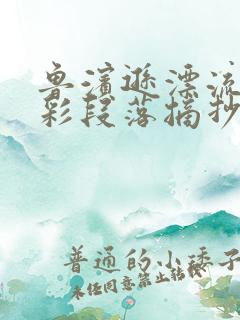 鲁滨逊漂流
彩段落摘抄
普通的小矮子
未经同意禁止转载